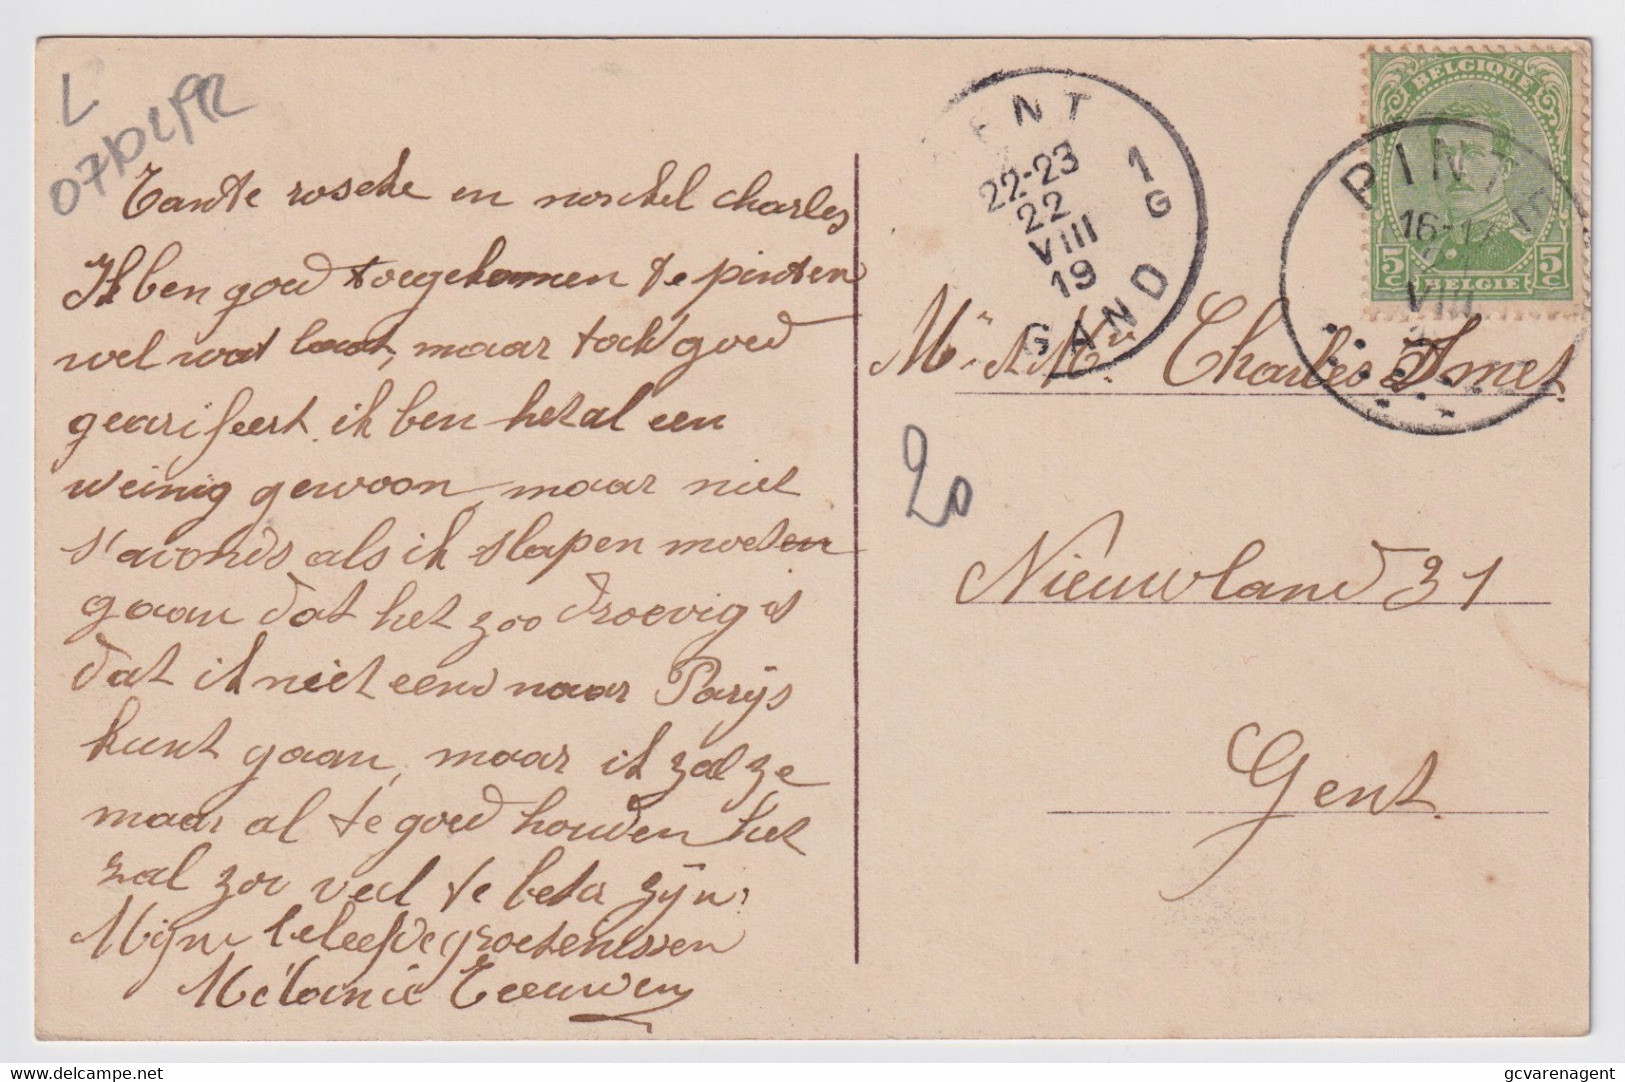 L
Tante rosette en nonkel Charles
Ik ben goed toegekomen te pinten
wel wat laat, maar toch goed
gearifeert. ik ben het al een
weinig gewoon, maar niet
s'avonds als ik slapen moeten
gaan dat het zoo droevig is
dat ik niet eens naar Parijs
kunt gaan, maar ik zal ze
maar al te goed houden het
zal zoo veel te beter zijn.
Mijne beleefde groetenissen
Mélanie Teeuwen
GENT 1
22-23
22
VIII
19
G
GAND
BELGIQUE
5c 5c
BELGIE
PINTE
16-17
VIII
Mr et Mme Charles Smet
20
Nieuwland 31
Gent.
gcvarenagent.com